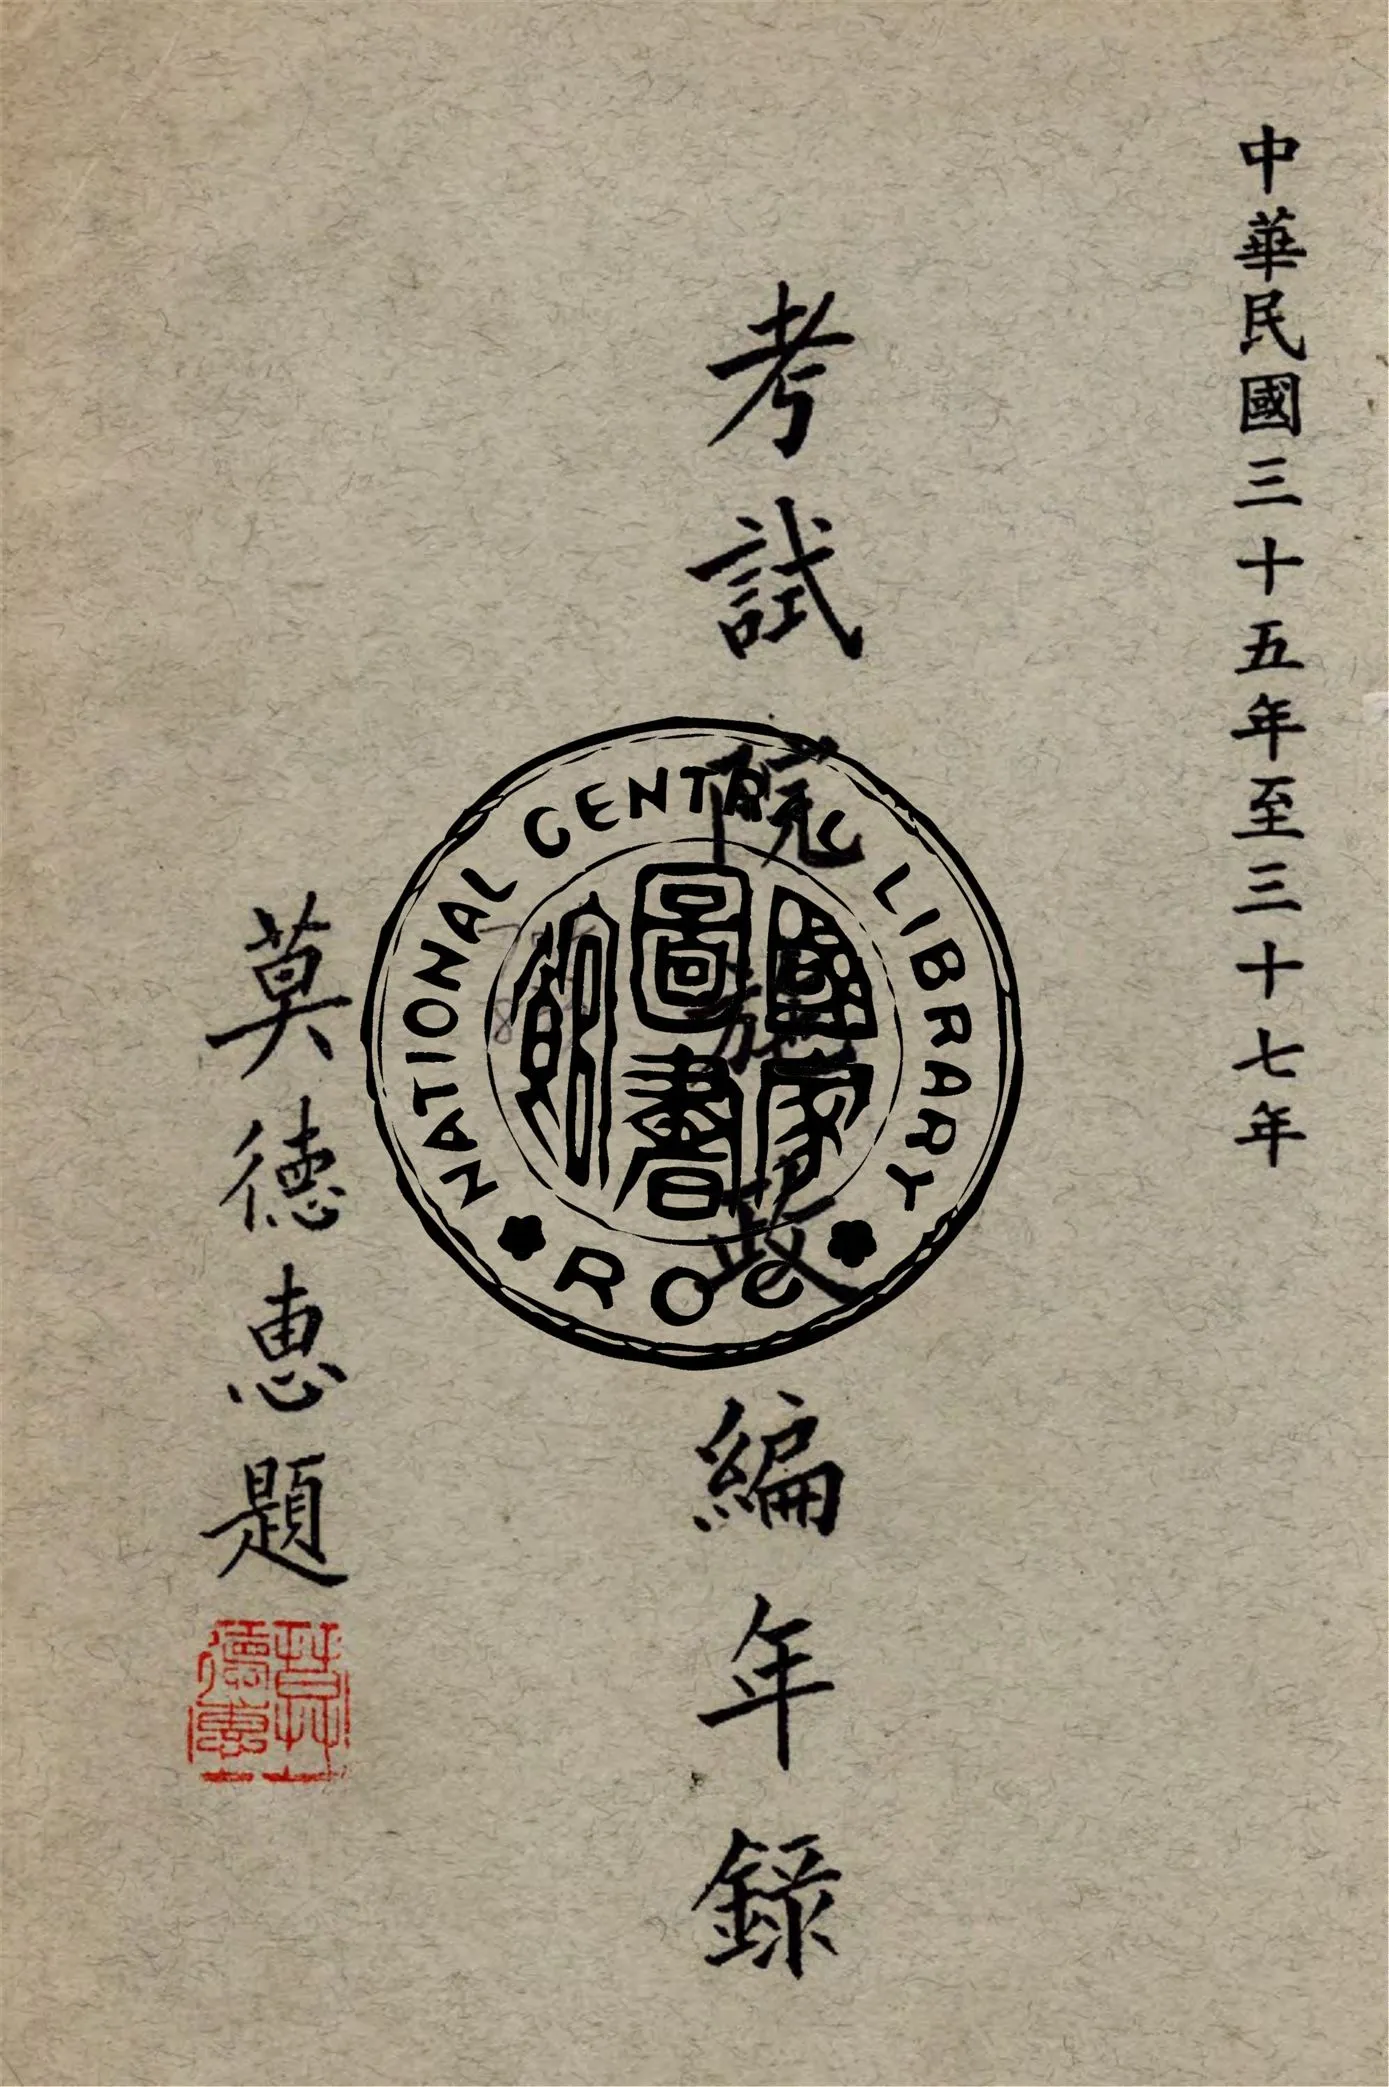 中華民國三十五年至三十七年
考試院施政編年錄
莫德惠題
莫德惠
NATIONAL CENTRAL LIBRARY
國家圖書館
ROC